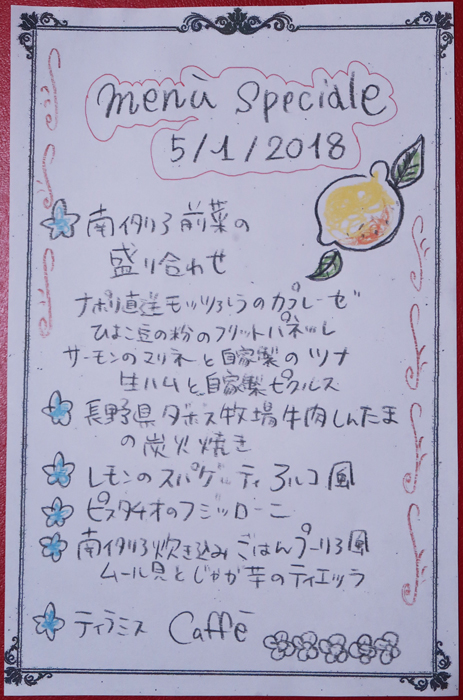 menù speciale
5/1/2018
南イタリア前菜の
盛り合わせ
ナポリ直送モッツァレラのカプレーゼ
ひよこ豆の粉のフリットパネッレ
サーモンのマリネと自家製のツナ
生ハムと自家製ピクルス
長野県ダボス牧場牛肉しんたま
の炭火焼き
レモンのスパゲッティアルコ風
ピスタチオのフジッローニ
南イタリア炊き込みごはんプーリア風
ムール貝とじゃが芋のティエッラ
ティラミス Caffè